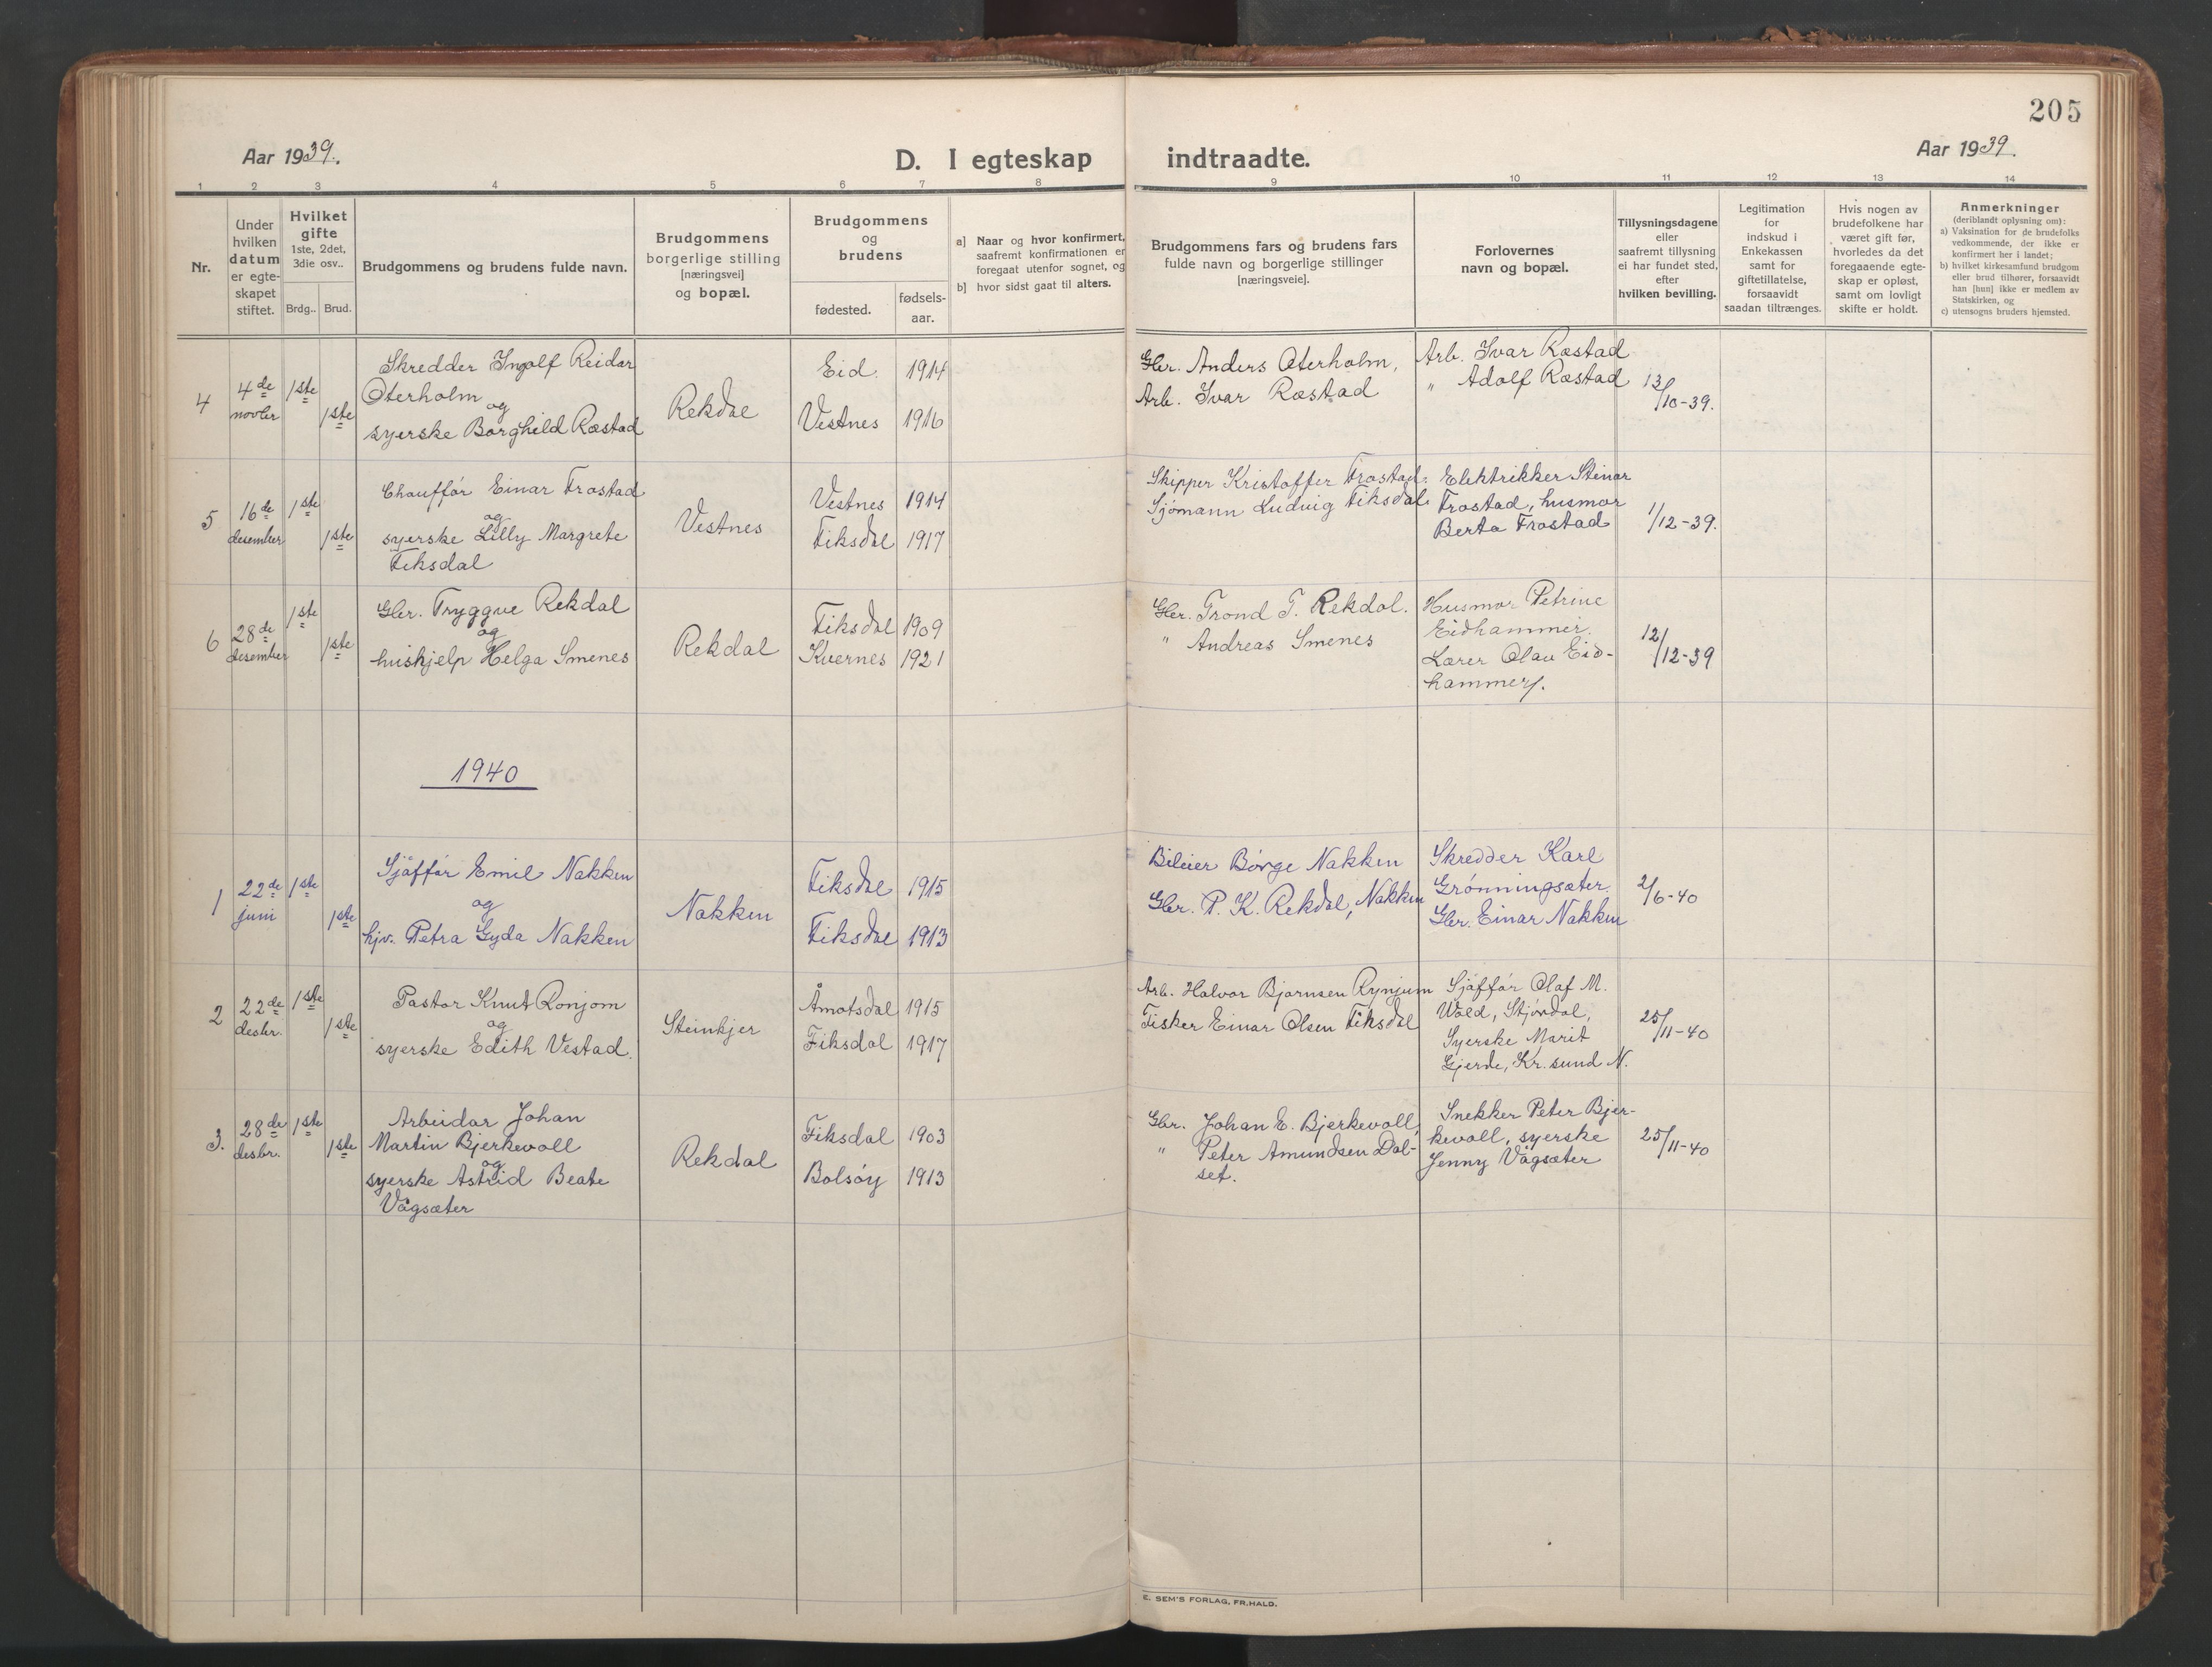 205
Aar 1939.
D. I egteskap indtraadte.
Aar 1939.
1 2 3 4 5 6 7 8 9 10 11 12 13 14
Nr.
Under
hvilken
datum
er egte-
skapet
stiftet.
Hvilket
gifte
1ste, 2det,
3die osv..
Brdg.. Brud.
Brudgommens og brudens fulde navn.
Brudgommens
borgerlige stilling
[næringsvei]
og bopæl.
Brudgommens
og
brudens
fødested.
fødsels-
aar.
a] Naar og hvor konfirmert,
saafremt konfirmationen er
foregaat utenfor sognet, og
b] hvor sidst gaat til alters.
Brudgommens fars og brudens fars
fulde navn og borgerlige stillinger
[næringsveie].
Forlovernes
navn og bopæl.
Tillysningsdagene
eller
saafremt tillysning
ei har fundet sted,
efter
hvilken bevilling.
Legitimation
for
indskud i
Enkekassen
samt for
giftetillatelse,
forsaavidt
saadan tiltrænges.
Hvis nogen av
brudefolkene har
været gift før,
hvorledes da det
foregaaende egte-
skap er opløst,
samt om lovligt
skifte er holdt.
Anmerkninger
(deriblandt oplysning om):
a) Vaksination for de brudefolks
vedkommende, der ikke er
konfirmert her i landet;
b) hvilket kirkesamfund brudgom
eller brud tilhører, forsaavidt
han [hun] ikke er medlem av
Statskirken, og
c) utensogns bruders hjemsted.
4
4de
novbr
1ste
1ste
Skredder Ingolf Reidar
Oterholm
og
syerske Borghild Ræstad
Rekdal
Eid. 1914
Vestnes 1916
Gbr. Anders Oterholm,
Arb. Ivar Ræstad
Arb. Ivar Ræstad
" Adolf Ræstad
13/10-39.
5
16de
desember
1ste
1ste
Chauffør Einar Frostad
og
syerske Lilly Margrete
Fiksdal
Vestnes
Vestnes 1914
Fiksdal 1917
Skipper Kristoffer Frostad.
Sjømann Ludvig Fiksdal.
Elektrikker Steinar
Frostad, husmor
Berta Frostad
1/12-39.
6
28de
desember
1ste
1ste
Gbr. Tryggve Rekdal
og
hushjelp Helga Smenes
Rekdal
Fiksdal 1909
Kvernes 1921
Gbr. Trond T. Rekdal.
" Andreas Smenes
Husmor Petrine
Eidhammer.
Lærer Olav Eid-
hammer.
12/12-39
1940
1
22de
juni
1ste
1ste
Sjåffør Emil Nakken
og
hjv. Petra Gyda Nakken
Nakken
Fiksdal 1915
Fiksdal 1913
Bileier Børge Nakken
Gbr. P. K. Rekdal, Nakken
Skredder Karl
Grønningsæter.
Gbr. Einar Nakken
2/6-40
2
22de
desbr.
1ste
1ste
Pastor Knut Ronjom
og
syerske Edith Vestad.
Steinkjer
Åmotsdal 1915
Fiksdal 1917
Arb. Halvor Bjørnsen Rynjum
Fisker Einar Olsen Fiksdal
Sjåffør Olaf M.
Wold, Stjørdal,
Syerske Marit
Gjerde, Kr.sund N.
25/11-40
3.
28de
desbr.
1ste
1ste
Arbeidar Johan
Martin Bjerkevoll
og
syerske Astrid Beate
Vågsæter
Rekdal
Fiksdal 1903
Bolsøy 1913
Gbr. Johan E. Bjerkevoll,
" Peter Amundsen Dal-
set.
Snekker Peter Bjer-
kevoll, syerske
Jenny Vågsæter
25/11-40
E. SEM'S FORLAG, FR.HALD.